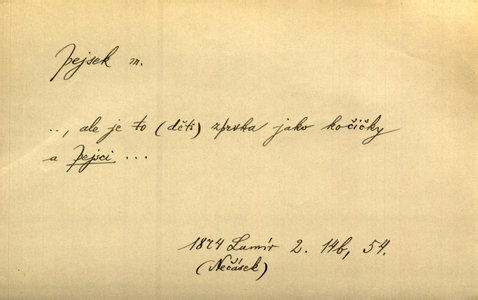 pejsek m.
..., ale je to (děti) zprvka jako kočičky
a pejsci ...
1874 Lumír 2. 14b, 54.
(Nečásek)